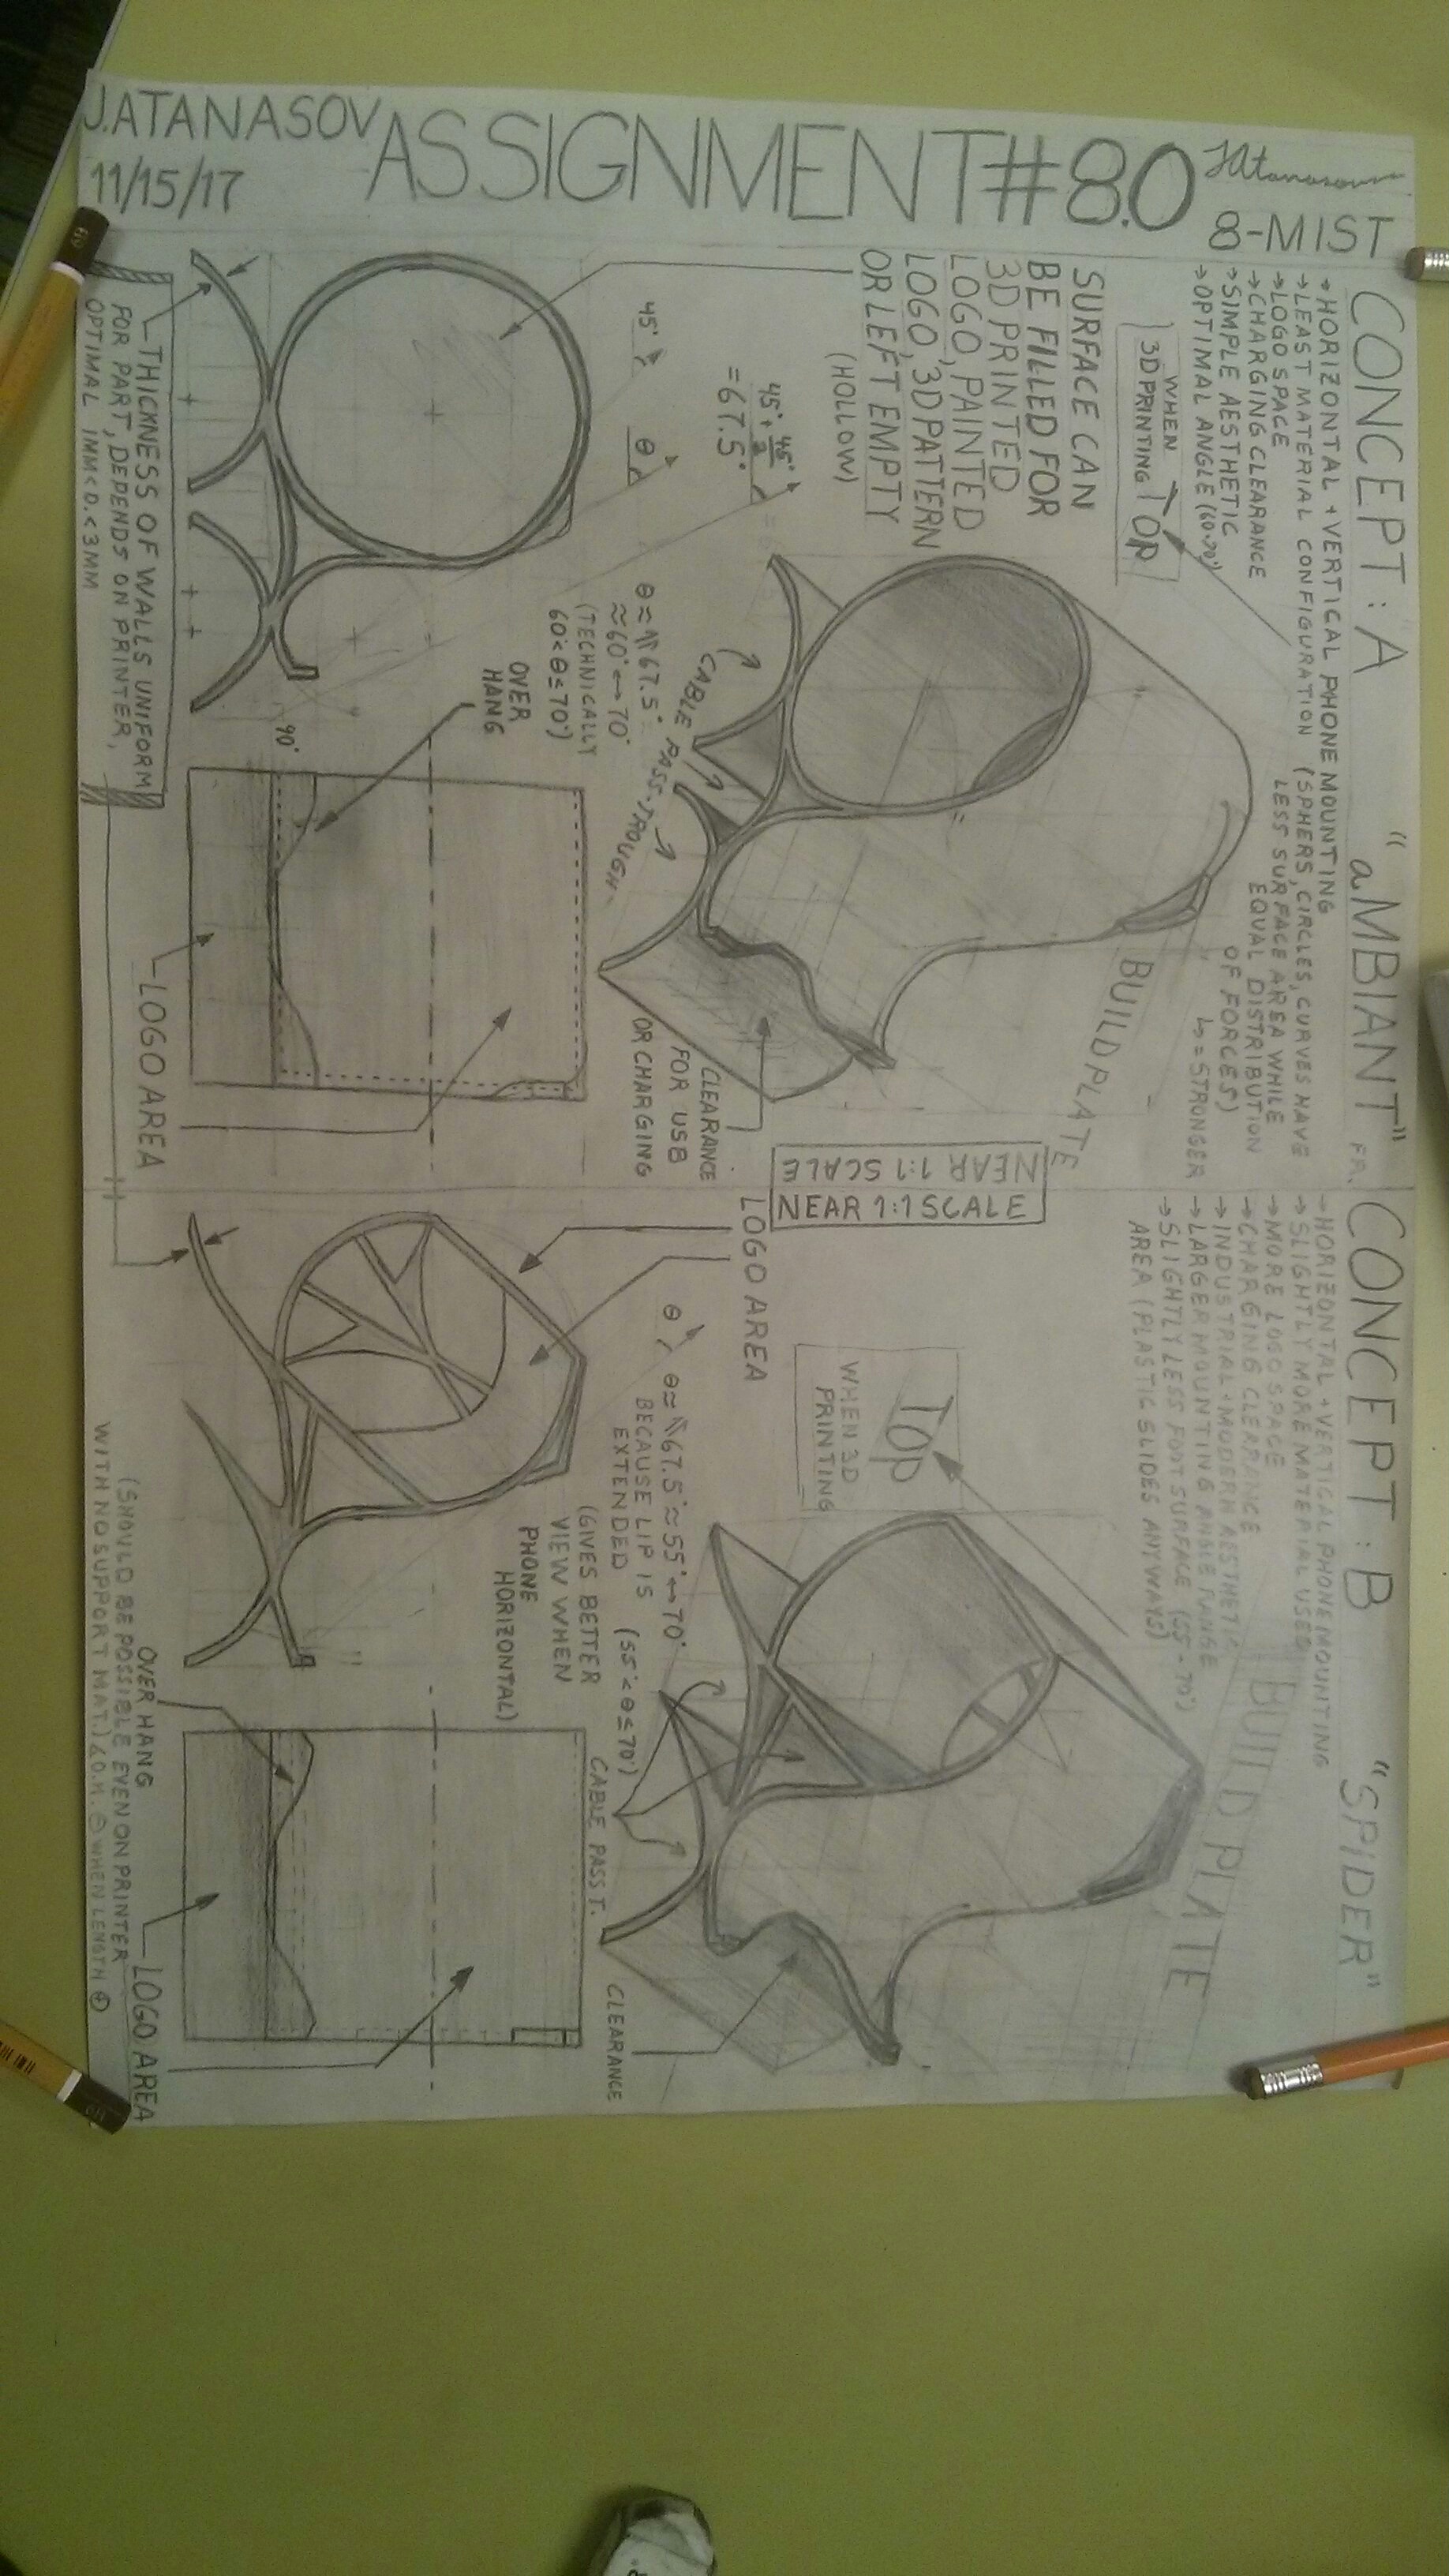 J.ATANASOV
11/15/17
ASSIGNMENT#8.0
8-MIST
CONCEPT: A
"aMBIANT" FR.
→HORIZONTAL + VERTICAL PHONE MOUNTING
→LEAST MATERIAL CONFIGURATION (SPHERS, CIRCLES, CURVES HAVE
LESS SURFACE AREA WHILE
EQUAL DISTRIBUTION
OF FORCES)
↳=STRONGER
→LOGO SPACE
→CHARGING CLEARANCE
→SIMPLE AESTHETIC
→OPTIMAL ANGLE (60-70°)
WHEN
3D PRINTING
TOP
SURFACE CAN
BE FILLED FOR
3D PRINTED
LOGO, PAINTED
LOGO, 3D PATTERN
OR LEFT EMPTY
(HOLLOW)
BUILD PLATE
45° + 45°/2
= 67.5°
45°
θ
θ ≈ 67.5°
≈60° ↔ 70°
(TECHNICALLY
60° < θ ≤ 70°)
CABLE PASS-TROUGH
OVER
HANG
90°
CLEARANCE
FOR USB
OR CHARGING
LOGO AREA
THICKNESS OF WALLS UNIFORM
FOR PART, DEPENDS ON PRINTER,
OPTIMAL 1MM < D. < 3MM
NEAR 1:1 SCALE
NEAR 1:1 SCALE
CONCEPT: B
"SPIDER"
→HORIZONTAL + VERTICAL PHONE MOUNTING
→SLIGHTLY MORE MATERIAL USED
→MORE LOGO SPACE
→CHARGING CLEARINCE
→INDUSTRIAL + MODERN AESTHETIC
→LARGER MOUNTING ANGLE RANGE
→SLIGHTLY LESS FOOT SURFACE (55-70°)
AREA (PLASTIC SLIDES ANYWAYS)
BUILD PLATE
TOP
WHEN 3D
PRINTING
LOGO AREA
θ
θ ≈ 67.5° ≈ 55° ↔ 70°
BECAUSE LIP IS
EXTENDED (55° < θ ≤ 70°)
(GIVES BETTER
VIEW WHEN
PHONE
HORIZONTAL)
CABLE PASS T.
CLEARANCE
OVER HANG
(SHOULD BE POSSIBLE EVEN ON PRINTER
WITH NO SUPPORT MAT.) O.H. ⊖ WHEN LENGTH ⊕
LOGO AREA